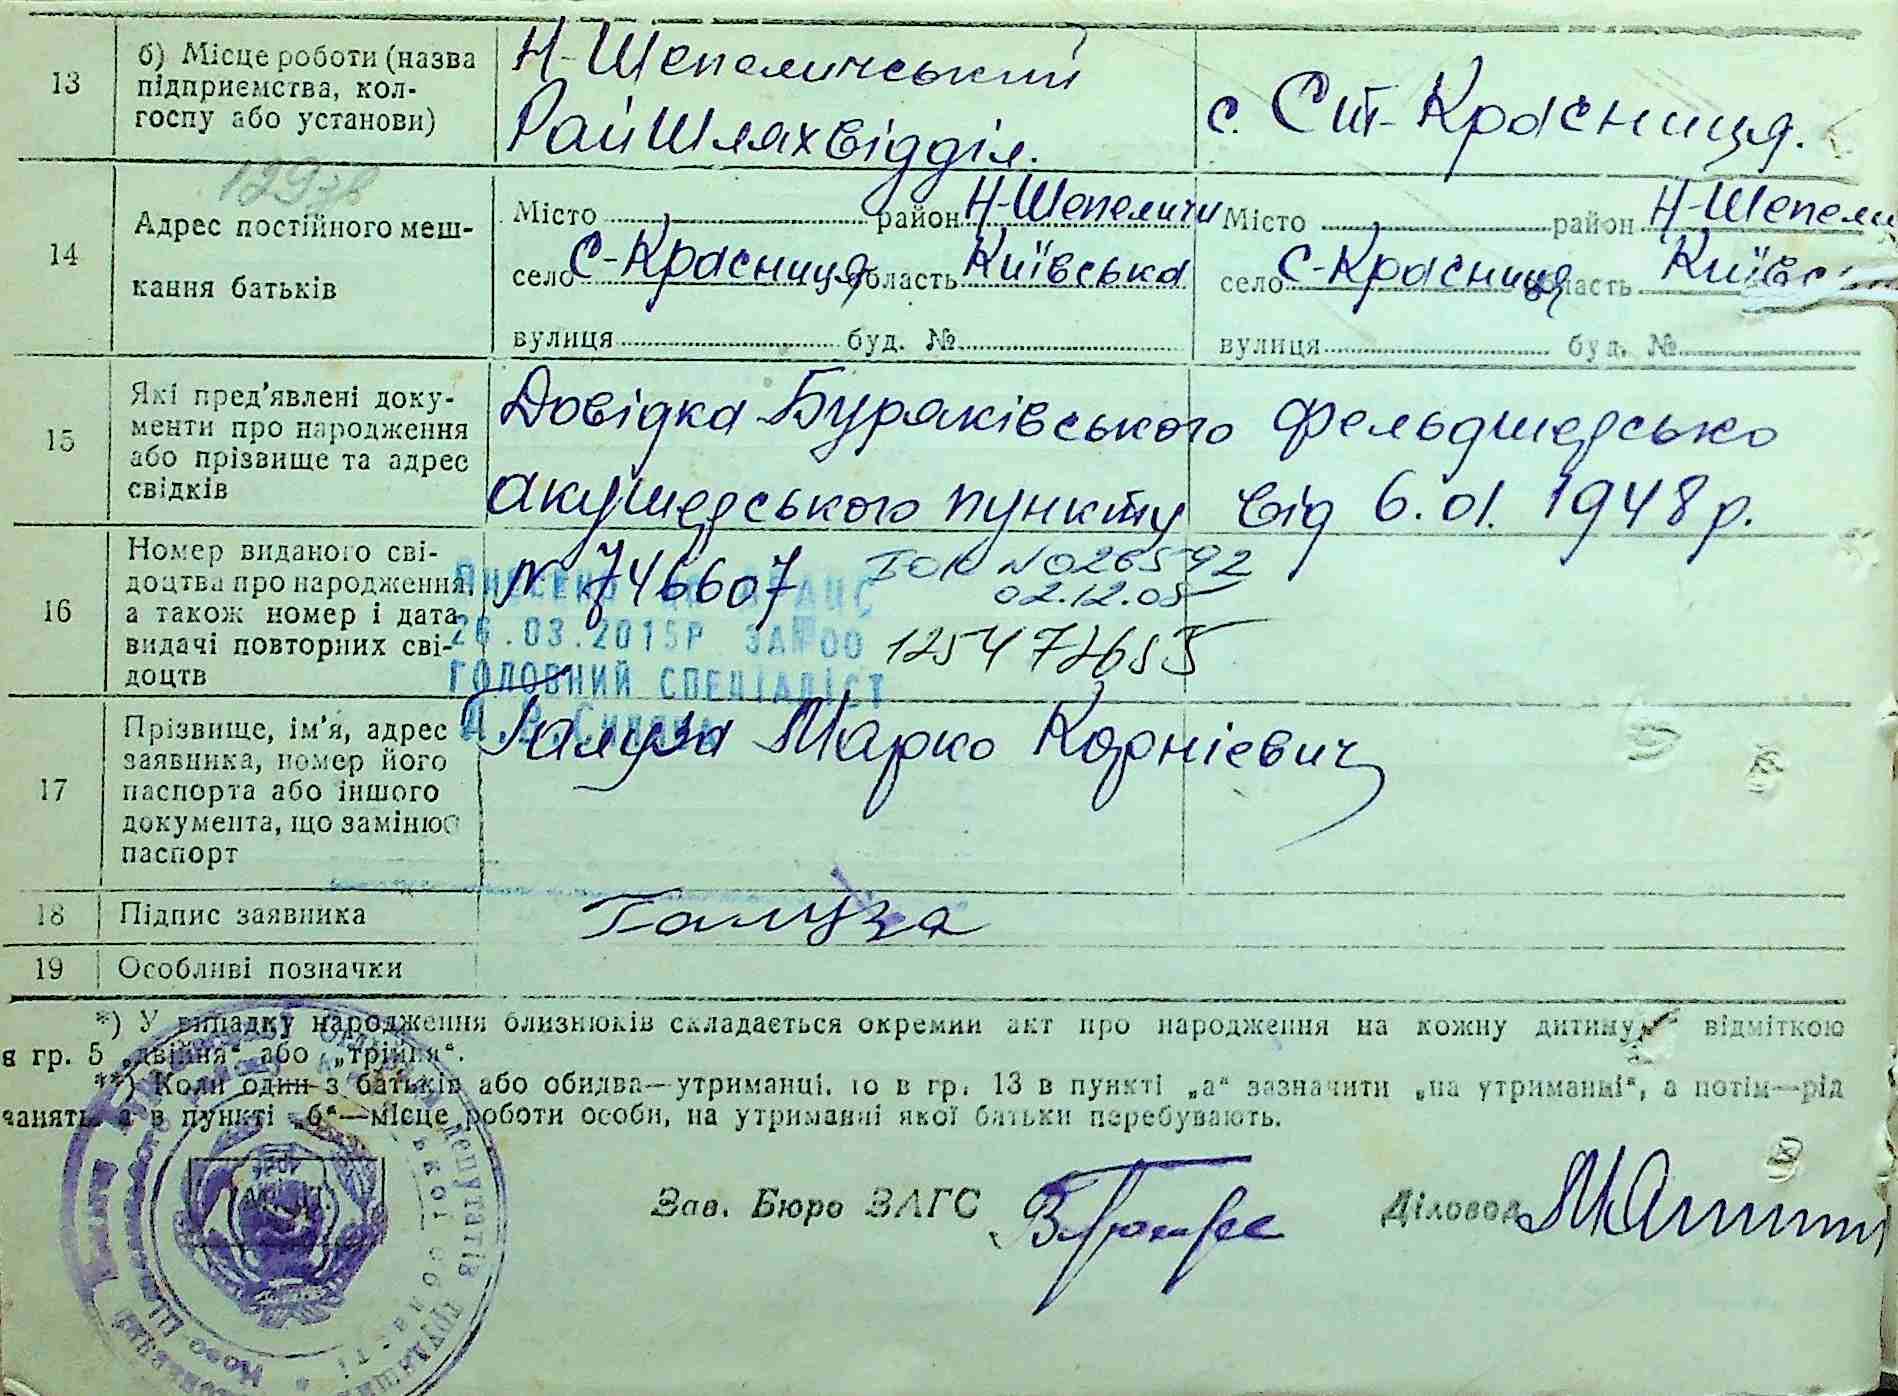 13
б) Місце роботи (назва
підприємства, кол-
госпу або установи)
Н-Шепеличський
РайШляхвідділ.
с. Ст-Красниця.
129зв
14
Адрес постійного меш-
кання батьків
Місто район Н-Шепеличи
село С-Красниця область Київська
вулиця буд. №
Місто район Н-Шепели
село С-Красниця область Київс
вулиця буд. №
15
Які пред'явлені доку-
менти про народження
або прізвище та адрес
свідків
Довідка Буряківського фельдшерсько
акушерського пункту від 6.01.1948р.
16
Номер виданого сві-
доцтва про народження,
а також номер і дата
видачі повторних сві-
доцтв
№ 746607
№026592
02.12.05
26.03.2015Р ЗА №00
ГОЛОВНИЙ СПЕЦІАЛІСТ
17
Прізвище, ім'я, адрес
заявника, номер його
паспорта або іншого
документа, що замінює
паспорт
Галуза Марко Корнієвич
18
Підпис заявника
Галуза
19
Особливі позначки
*) У випадку народження близнюків складається окремий акт про народження на кожну дитину з відміткою
в гр. 5 „двійня“ або „трійня“.
**) Коли один з батьків або обидва—утриманці, то в гр. 13 в пункті „а“ зазначити „на утриманні“, а потім—рід
занять, а в пункті „б“—місце роботи особи, на утриманні якої батьки перебувають.
Зав. Бюро ЗАГС
Діловод